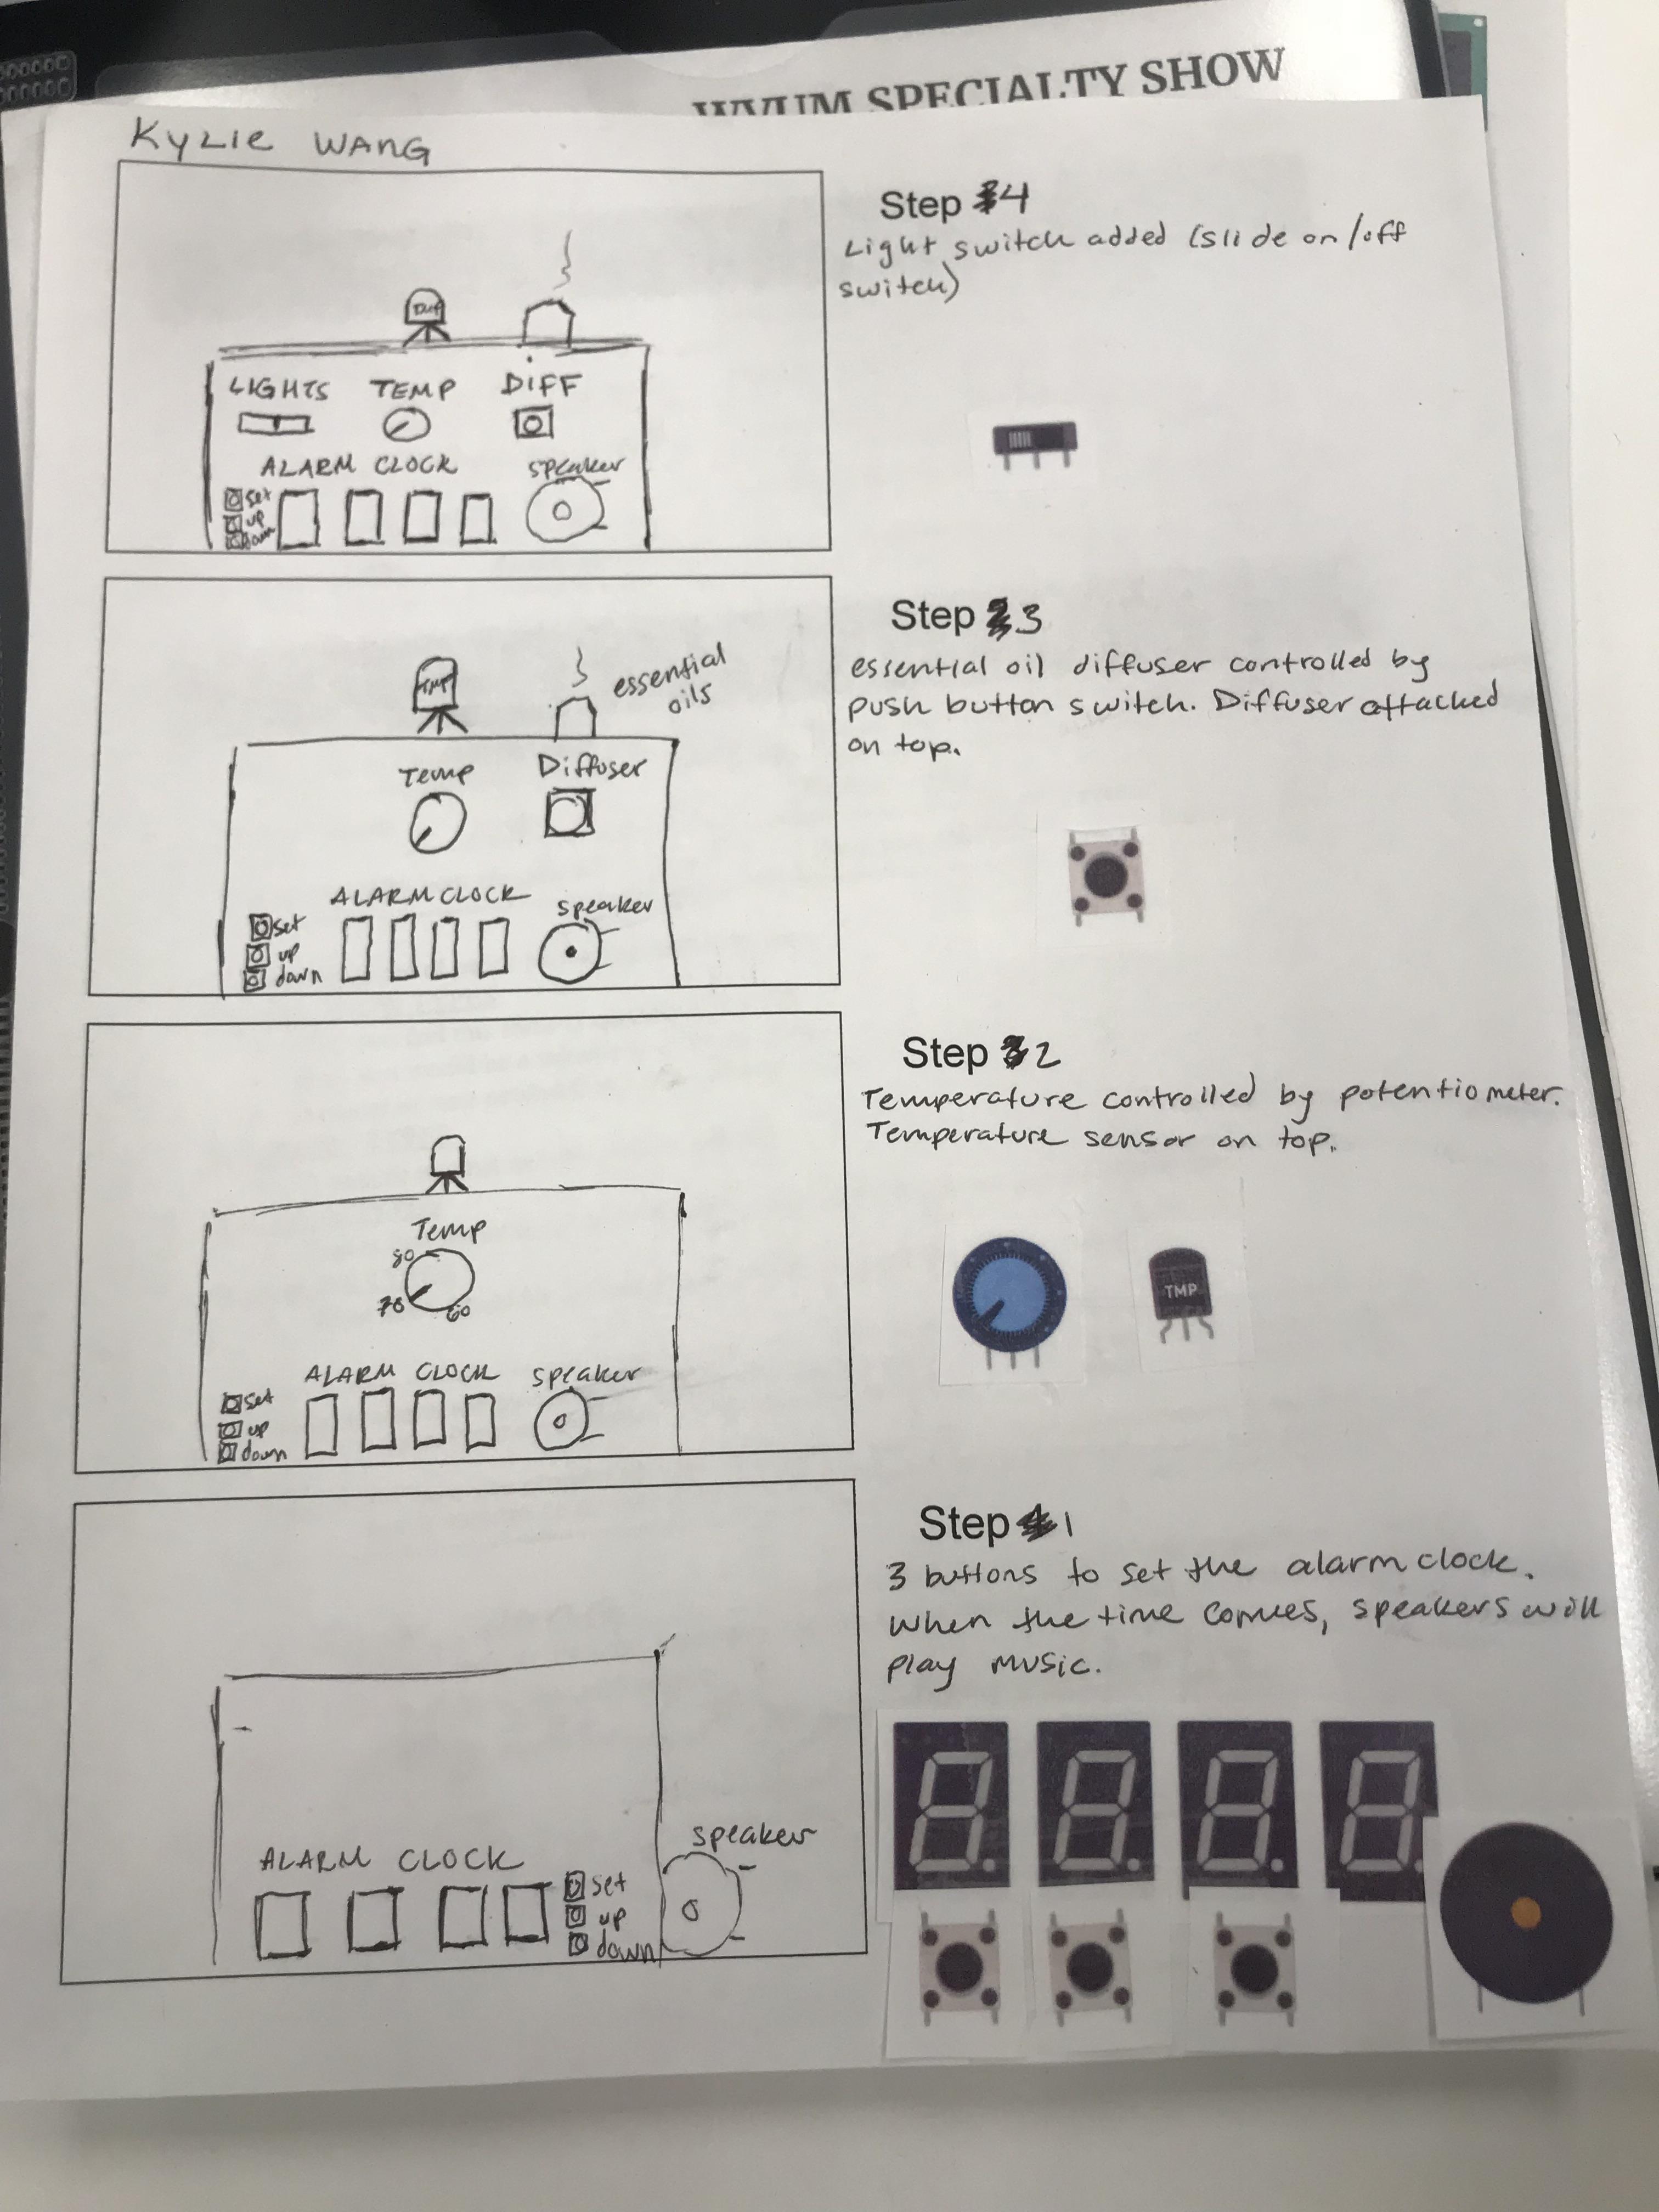 SPECIALTY SHOW
KYLIE WANG
LIGHTS TEMP DIFF
set
up
down
ALARM CLOCK
speaker
Step 4
Light switch added (slide on/off
switch)
TMP
essential
oils
Temp
Diffuser
set
up
down
ALARM CLOCK
speaker
Step 3
essential oil diffuser controlled by
push button switch. Diffuser attached
on top.
Temp
80
70
60
set
up
down
ALARM CLOCK
speaker
Step 2
Temperature controlled by potentiometer.
Temperature sensor on top.
TMP
ALARM CLOCK
set
up
down
speaker
Step 1
3 buttons to set the alarm clock.
when the time comes, speakers will
play music.